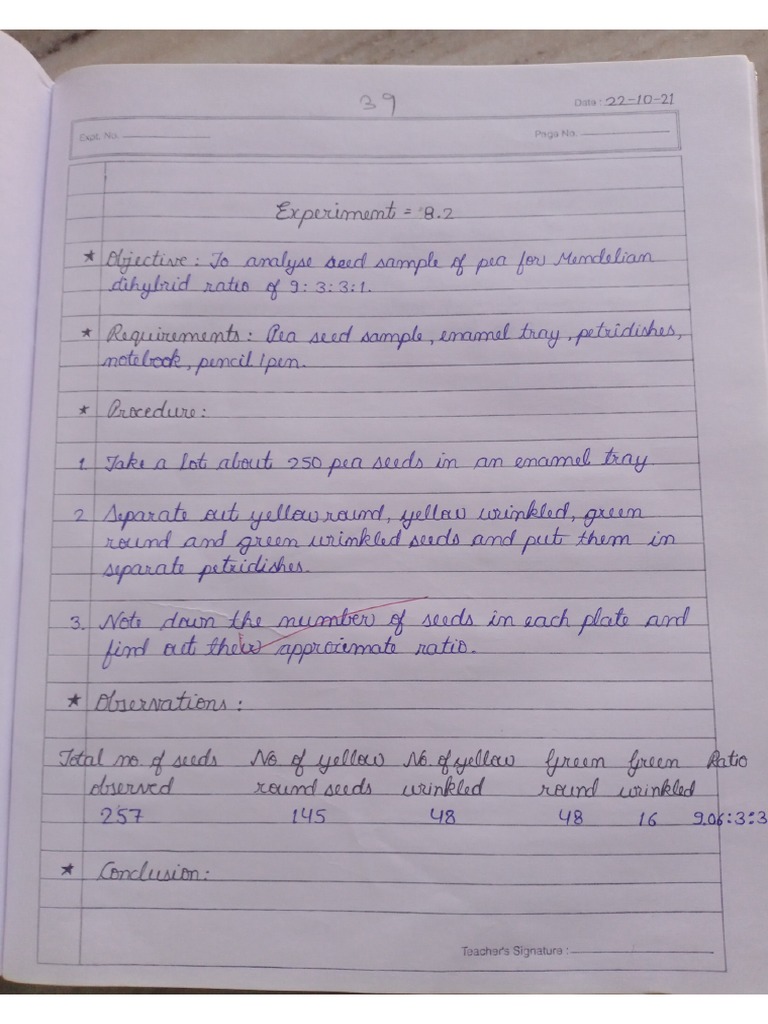 39
Date : 22-10-21
Expt. No.
Page No.
Experiment = 8.2
* Objective : To analyse seed sample of pea for Mendelian
dihybrid ratio of 9:3:3:1.
* Requirements : Pea seed sample, enamel tray, petridishes,
notebook, pencil/pen.
* Procedure :
1. Take a lot about 250 pea seeds in an enamel tray
2. Separate out yellow round, yellow wrinkled, green
round and green wrinkled seeds and put them in
separate petridishes.
3. Note down the number of seeds in each plate and
find out their approximate ratio.
* Observations :
Total no. of seeds No. of yellow No. of yellow Green Green Ratio
observed round seeds wrinkled round wrinkled
257 145 48 48 16 9.06:3:3
* Conclusion :
Teacher's Signature :